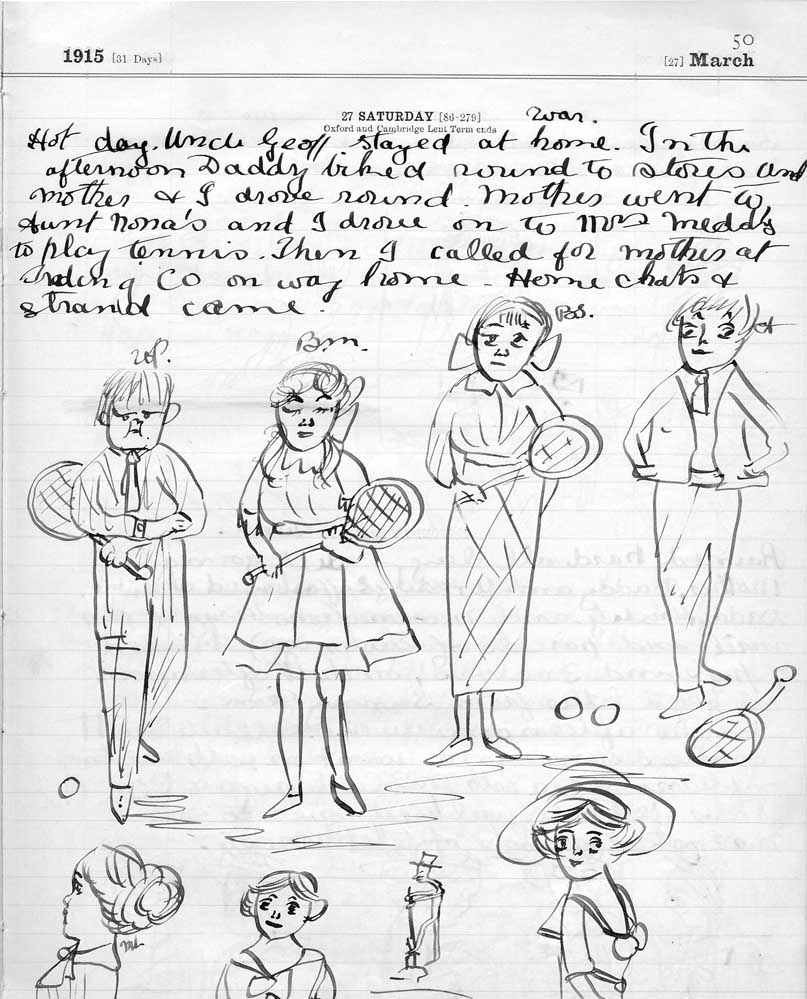 50
1915 [31 Days] [27] March
27 SATURDAY [86-279] War.
Oxford and Cambridge Lent Term ends
Hot day. Uncle Geoff stayed at home. In the
afternoon Daddy biked round to stores and
mother & I drove round. Mother went to
Aunt Nona's and I drove on to Mrs
to play tennis. Then I called for mother at
CO on way home - Home chats &
strand came.
B.m. B.S.